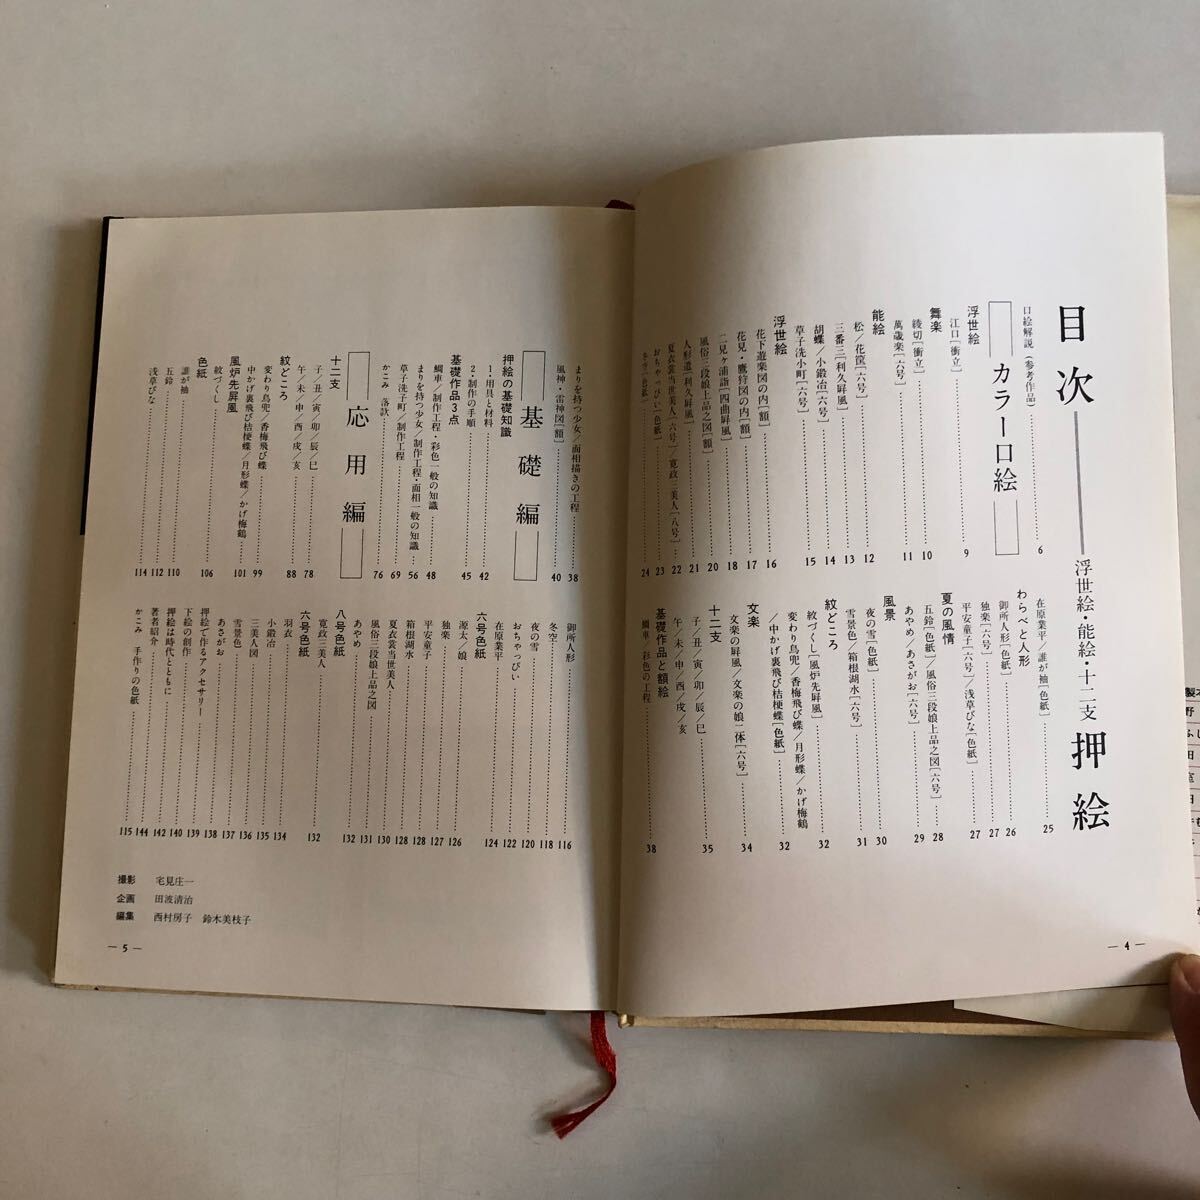 目次
浮世絵・能絵・十二支
押絵
口絵解説(参考作品) 6
カラー口絵
浮世絵
江口[衝立] 9
舞楽
綾切[衝立] 10
萬歳楽[六号] 11
能絵
松/花筐[六号] 12
三番三[利久屏風] 13
胡蝶/小鍛冶[六号] 14
草子洗小町[六号] 15
浮世絵
花下遊楽図の内[額] 16
花見・鷹狩図の内[額] 17
二見ヶ浦詣[四曲屏風] 18
風俗三段娘上品之図[額] 20
人形遣[利久屏風] 21
夏衣裳当世美人[六号]/寛政三美人[八号] 22
おちゃっぴい[色紙] 23
冬空[色紙] 24
在原業平/誰が袖[色紙] 25
わらべと人形
御所人形[色紙] 26
独楽[六号] 27
平安童子[六号]/浅草びな[色紙] 27
夏の風情
五鈴[色紙]/風俗三段娘上品之図[六号] 28
あやめ/あさがお[六号] 29
風景
夜の雪[色紙] 30
雪景色/箱根湖水[六号] 31
紋どころ
紋づくし[風炉先屏風] 32
変わり鳥兜/香梅飛び蝶/月形蝶/かげ梅鶴
/中かげ裏飛び桔梗蝶[色紙] 32
文楽
文楽の屏風/文楽の娘二体[六号] 34
十二支
子/丑/寅/卯/辰/巳
午/未/申/酉/戌/亥 35
基礎作品と額絵
鯛車/彩色の工程 38
— 4 —
まりを持つ少女/面相描きの工程 38
風神・雷神図[額] 40
基礎編
押絵の基礎知識
1・用具と材料 42
2・制作の手順 45
基礎作品3点
鯛車/制作工程・彩色一般の知識 48
まりを持つ少女/制作工程・面相一般の知識 56
草子洗子町/制作工程 69
かこみ 落款 76
応用編
十二支
子/丑/寅/卯/辰/巳 78
午/未/申/酉/戌/亥 88
紋どころ
変わり鳥兜/香梅飛び蝶 99
中かげ裏飛び桔梗蝶/月形蝶/かげ梅鶴 101
風炉先屏風
紋づくし 106
色紙
誰が袖 110
五鈴 112
浅草びな 114
御所人形 116
冬空 118
夜の雪 120
おちゃっぴい 122
在原業平 124
六号色紙
源太/娘 126
独楽 127
平安童子 128
箱根湖水 128
夏衣裳当世美人 130
風俗三段娘上品之図 131
あやめ 132
八号色紙
寛政三美人 132
六号色紙
羽衣 134
小鍛冶 135
三美人図 136
雪景色 137
あさがお 138
下絵の創作 139
押絵で作るアクセサリー 140
押絵は時代とともに 142
著者紹介 144
かこみ 手作りの色紙 115
撮影 宅見庄一
企画 田波清治
編集 西村房子 鈴木美枝子
— 5 —